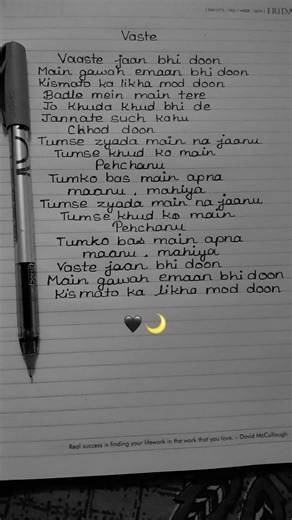 FRIDA
Vaste
Vaaste jaan bhi doon
Main gawah emaan bhi doon
Kismato ka likha mod doon
Badle mein main tere
Jo Khuda khud bhi de
Jannate such kahu
Chhod doon
Tumse zyada main na jaanu
Tumse khud ko main
Pehchanu
Tumko bas main apna
maanu, mahiya
Tumse zyada main na jaanu
Tumse khud ko main
Pehchanu
Tumko bas main apna
maanu, mahiya
Vaste jaan bhi doon
Main gawah emaan bhi doon
Kismato ka likha mod doon
🖤🌙
Real success is finding your lifework in the work that you love. - David McCullough